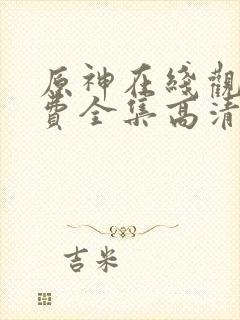 原神在綫觀
費全集高清
吉米